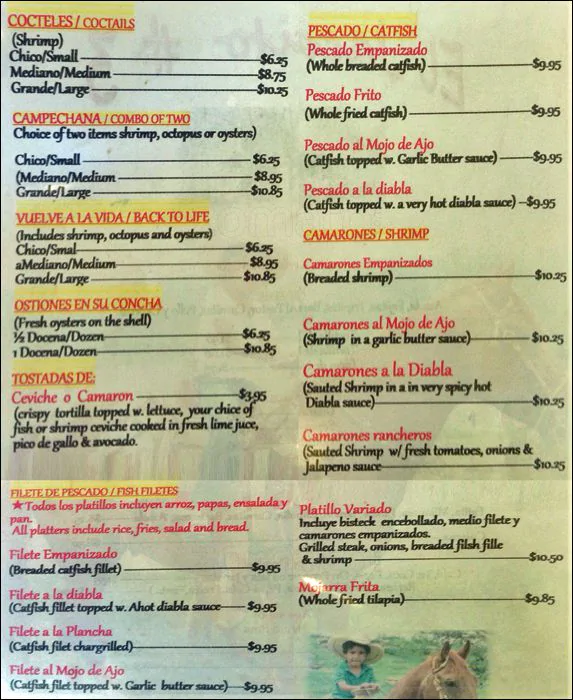 COCTELES / COCTAILS
(Shrimp)
Chico/Small $6.25
Mediano/Medium $8.75
Grande/Large $10.25
CAMPECHANA / COMBO OF TWO
Choice of two items shrimp, octopus or oysters)
Chico/Small $6.25
(Mediano/Medium $8.95
Grande/Large $10.85
VUELVE A LA VIDA / BACK TO LIFE
(Includes shrimp, octopus and oysters)
Chico/Smal $6.25
aMediano/Medium $8.95
Grande/Large $10.85
OSTIONES EN SU CONCHA
(Fresh oysters on the shell)
½ Docena/Dozen $6.25
1 Docena/Dozen $10.85
TOSTADAS DE:
Ceviche o Camaron $3.95
(crispy tortilla topped w. lettuce, your chice of
fish or shrimp ceviche cooked in fresh lime juce,
pico de gallo & avocado.
FILETE DE PESCADO / FISH FILETES
★ Todos los platillos incluyen arroz, papas, ensalada y
pan.
All platters include rice, fries, salad and bread.
Filete Empanizado
(Breaded catfish fillet) $9.95
Filete a la diabla
(Catfish fillet topped w. Ahot diabla sauce $9.95
Filete a la Plancha
(Catfish filet chargrilled) $9.95
Filete al Mojo de Ajo
(Catfish filet topped w. Garlic butter sauce) $9.95
PESCADO / CATFISH
Pescado Empanizado
(Whole breaded catfish) $9.95
Pescado Frito
(Whole fried catfish) $9.95
Pescado al Mojo de Ajo
(Catfish topped w. Garlic Butter sauce) $9.95
Pescado a la diabla
(Catfish topped w. a very hot diabla sauce) $9.95
CAMARONES / SHRIMP
Camarones Empanizados
(Breaded shrimp) $10.25
Camarones al Mojo de Ajo
(Shrimp in a garlic butter sauce) $10.25
Camarones a la Diabla
(Sauted Shrimp in a in very spicy hot
Diabla sauce) $10.25
Camarones rancheros
(Sauted Shrimp w/ fresh tomatoes, onions &
Jalapeno sauce $10.25
Platillo Variado
Incluye bisteck encebollado, medio filete y
camarones empanizados.
Grilled steak, onions, breaded filsh fille
& shrimp $10.50
Mojarra Frita
(Whole fried tilapia) $9.85